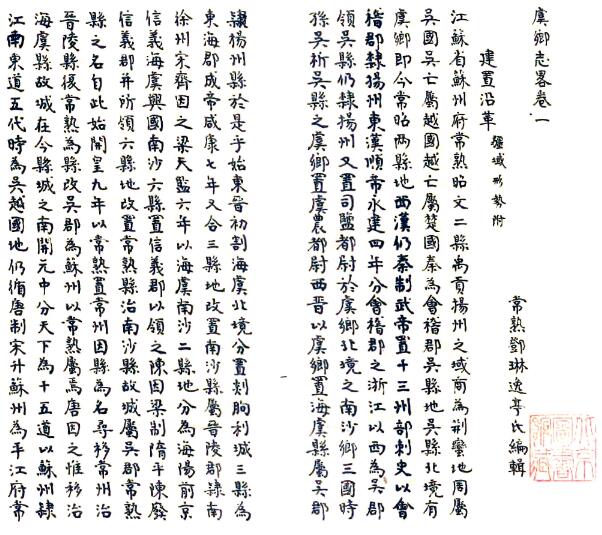 虞鄉志畧卷一
常熟鄧琳逸亭氏編輯
建置沿革 疆域形勢附
江蘇省蘇州府常熟昭文二縣禹貢揚州之域商為荆蠻地周屬
吳國吳亡屬越國越亡屬楚國秦為會稽郡吳縣地吳縣北境有
虞鄉即今常昭两縣地西漢仍秦制武帝置十三州部刺史以會
稽郡隸揚州東漢順帝永建四年分會稽郡之浙江以西為吳郡
領吳縣仍隸揚州又置司鹽都尉於虞鄉北境之南沙鄉三國時
孫吳析吳縣之虞鄉置虞農都尉西晉以虞鄉置海虞縣屬吳郡
隸楊州縣於是乎始東晉初割海虞北境分置剡朐利城三縣為
東海郡成帝咸康七年又合三縣地改置南沙縣屬晉陵郡隸南
徐州宋齊因之梁天監六年以海虞南沙二縣地分為海陽前京
信義海虞興國南沙六縣置信義郡以領之陳因梁制隋平陳廢
信義郡并所領六縣地改置常熟縣治南沙縣故城屬吳郡常熟
縣之名自此始開皇九年以常熟置常州因縣為名尋移常州治
晉陵縣復常熟為縣改吳郡為蘇州以常熟屬焉唐因之惟移治
海虞縣故城在今縣城之南開元中分天下為十五道以蘇州隸
江南東道五代時為吳越國地仍循唐制宋升蘇州為平江府常